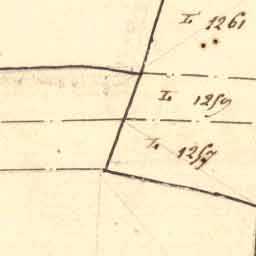 I. 1261
I. 1259
I. 1257